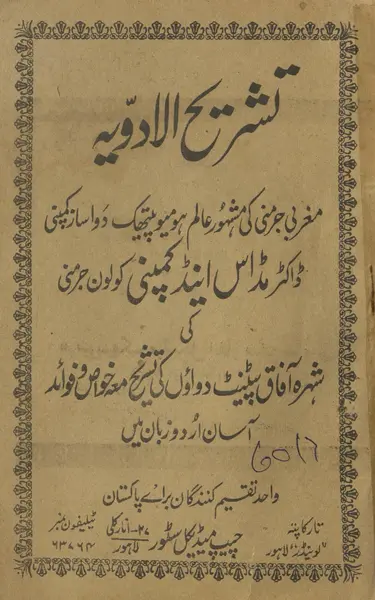 تشریح الادویہ
مغربی جرمنی کی مشہور عالم ہومیوپیتھیک دواساز کمپنی
ڈاکٹر مڈاس اینڈ کمپنی کولون جرمنی
کی
شہرہ آفاق پیٹنٹ دواؤں کی تشریح معہ خواص و فوائد
آسان اردو زبان میں
واحد تقسیم کنندگان برائے پاکستان
تار کا پتہ
"لوینڈر" لاہور
چیپ میڈیکل سٹور
۲۷- انار کلی
لاہور
ٹیلیفون نمبر
۶۳۷۶۴